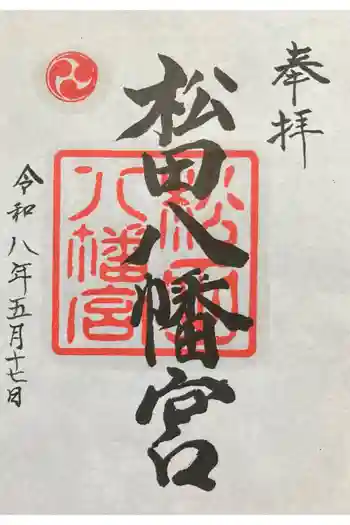 奉拝
松田八幡宮
松田
八幡宮
令和八年五月十七日